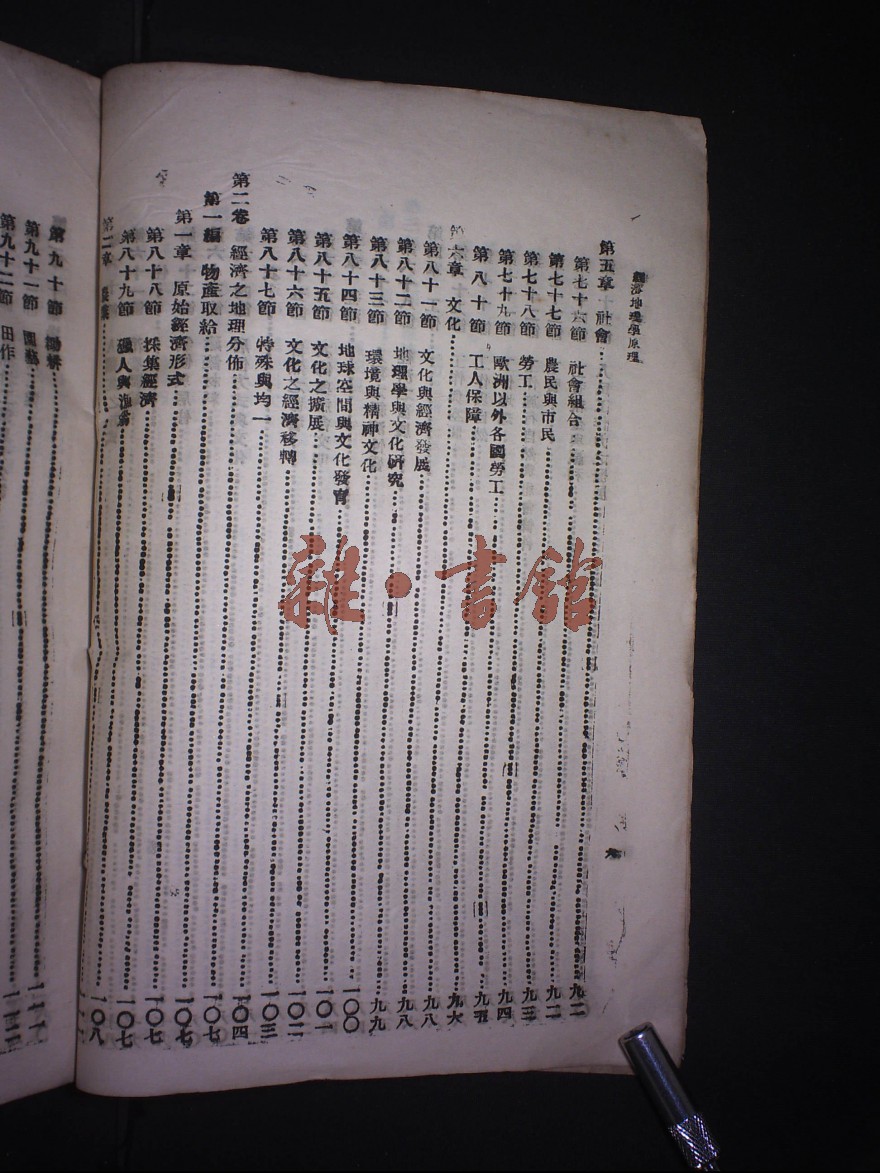 經濟地理學原理
第五章 社會 九二
第七十六節 社會組合 九二
第七十七節 農民與市民 九二
第七十八節 勞工 九三
第七十九節 歐洲以外各國勞工 九四
第八十節 工人保障 九五
第六章 文化 九六
第八十一節 文化與經濟發展 九八
第八十二節 地理學與文化研究 九八
第八十三節 環境與精神文化 九九
第八十四節 地球空間與文化發育 一〇〇
第八十五節 文化之擴展 一〇一
第八十六節 文化之經濟移轉 一〇二
第八十七節 特殊與均一 一〇三
第二卷 經濟之地理分佈 一〇四
第一編 物產取給 一〇七
第一章 原始經濟形式 一〇七
第八十八節 採集經濟 一〇七
第八十九節 獵人與漁翁 一〇七
第二章 一〇八
第九十節 鋤耕
第九十一節 園藝
第九十二節 田作
雜·書館